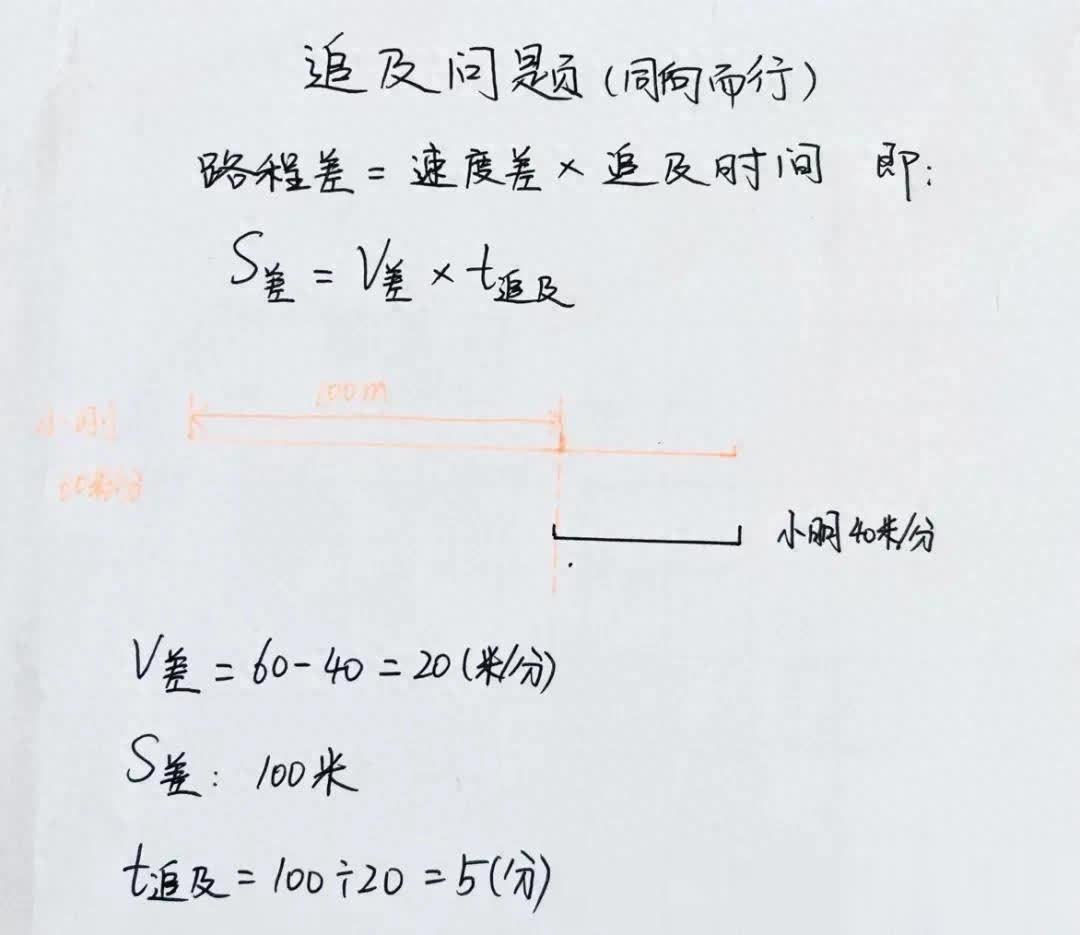 追及问题(同向而行)
路程差=速度差×追及时间 即:
S差=V差×t追及
100m
小刚
60米/分
小明40米/分
V差=60-40=20(米/分)
S差:100米
t追及=100÷20=5(分)